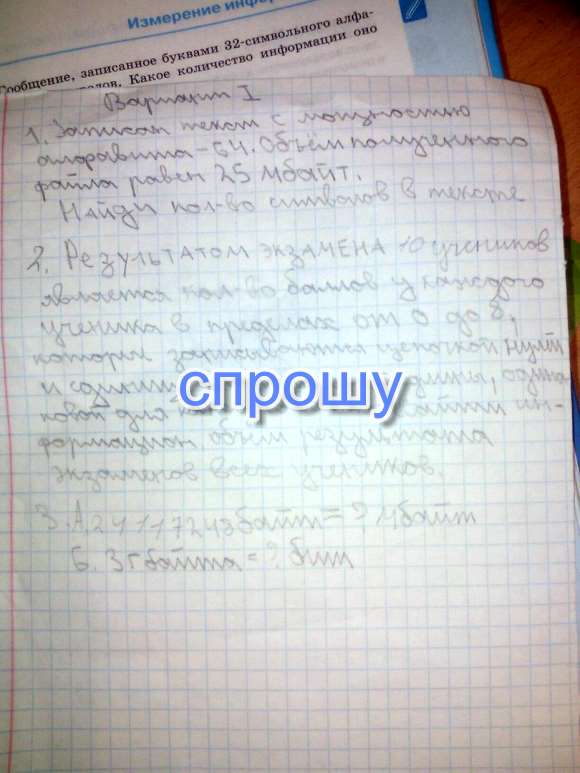 Измерение инфор
Сообщение, записанное буквами 32-символьного алфа-
Какое количество информации оно
Вариант I
1. Записан текст с мощностью
алфавита - 64. Объём полученного
файла равен 25 Мбайт.
Найди кол-во символов в тексте
2. Результатом экзамена 10 учеников
является кол-во баллов у каждого
ученика в пределах от 0 до 8,
которые записываются цепочкой нулей
и
спрошу
длины, одина-
ковой для
ин-
формацион. объём результата
экзаменов всех учеников.
3. А. байт = ? Мбайт
Б. 3 Гбайта = ? бит